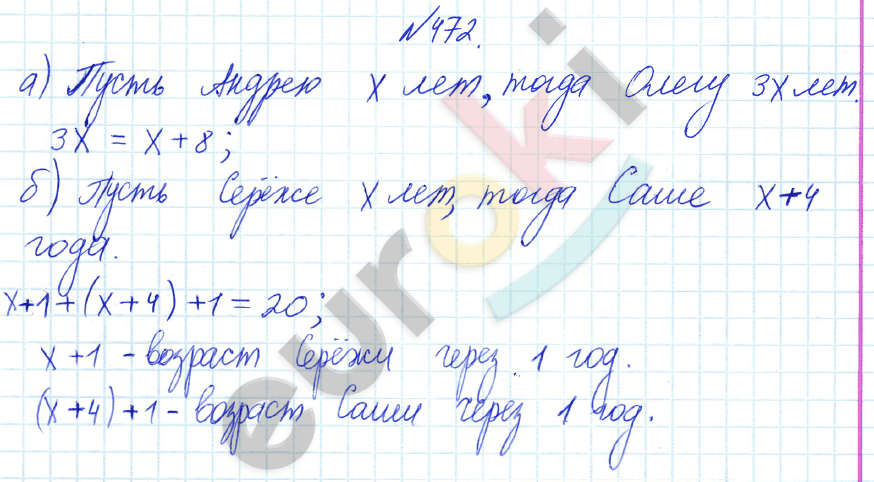 №472.
а) Пусть Андрею x лет, тогда Олегу 3x лет.
3x = x + 8;
б) Пусть Серёже x лет, тогда Саше x+4
года.
x+1+(x+4)+1=20;
x+1 - возраст Серёжи через 1 год.
(x+4)+1 - возраст Саши через 1 год.
euroki